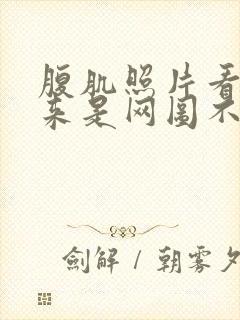 腹肌照片看
来是网图不
剑解 / 朝雾夕